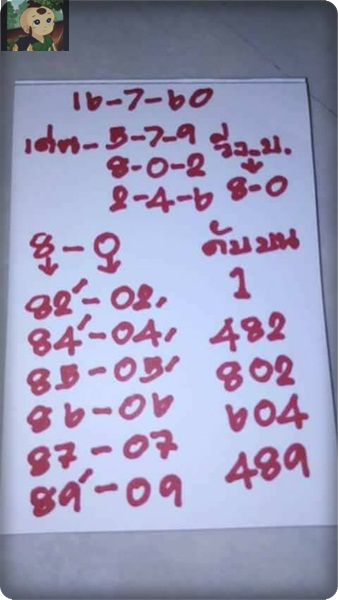 16-7-60
เด่น-5-7-9 วิ่ง-บ.
8-0-2
2-4-6 8-0
8-0 ดับบน
82-02, 1
84-04, 482
85-05 802
86-06 604
87-07 489
89-09